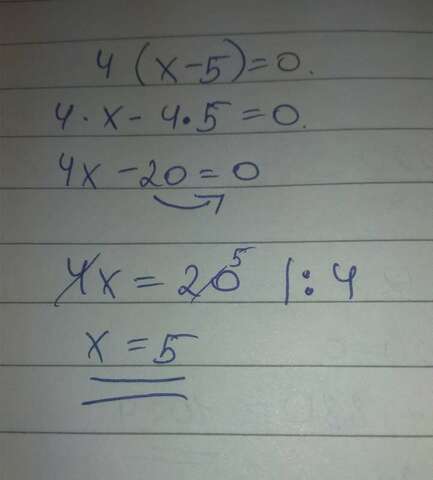 4(x-5)=0.
4·x-4·5=0.
4x-20=0
4x=20 5 |:4
x=5